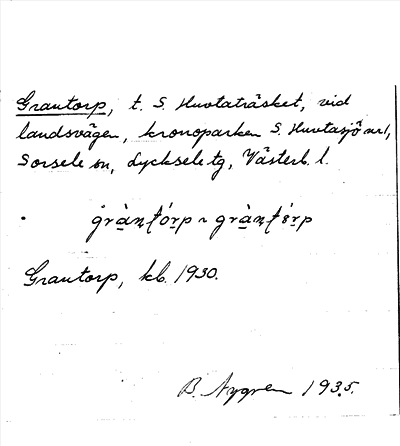 Grantorp, t. S. Huvtaträsket, vid
landsvägen, kronoparken S. Huvtasjö nr 1,
Sorsele sn, Lycksele tg, Västerb. l.
gràn̩tórp ~ gràn̩tórp
Grantorp, kb. 1930.
B. Nygren 1935.